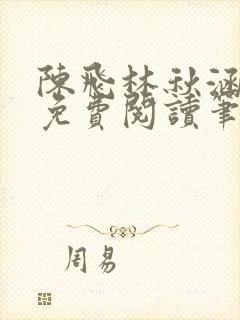 陳飛林秋涵
免費閱讀筆
周易